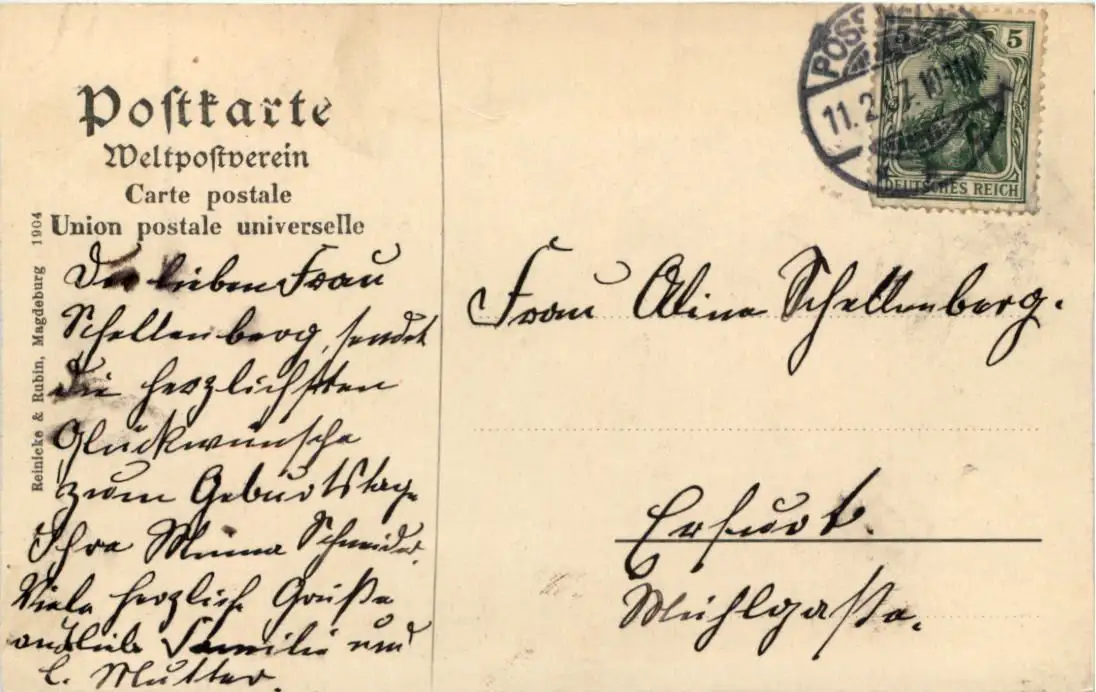 Postkarte
Weltpostverein
Carte postale
Union postale universelle
Reinicke & Rubin, Magdeburg 1904
Der lieben Frau
Schellenberg, sendet
die herzlichsten
Glückwünsche
zum Geburtstage
Ihre Minna Schneider.
Viele herzliche Grüße
an liebe Familie und
l. Mutter.
5 5
DEUTSCHES REICH
11.2.07. 10-11
Frau Aline Schellenberg.
Erfurt.
Mühlgasse.